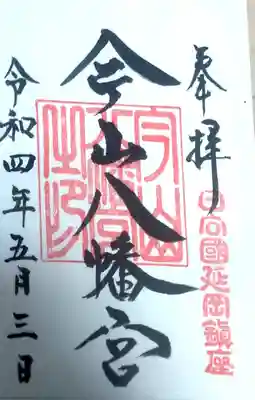 奉拝
日向國延岡鎮座
今山八幡宮
令和四年五月三日